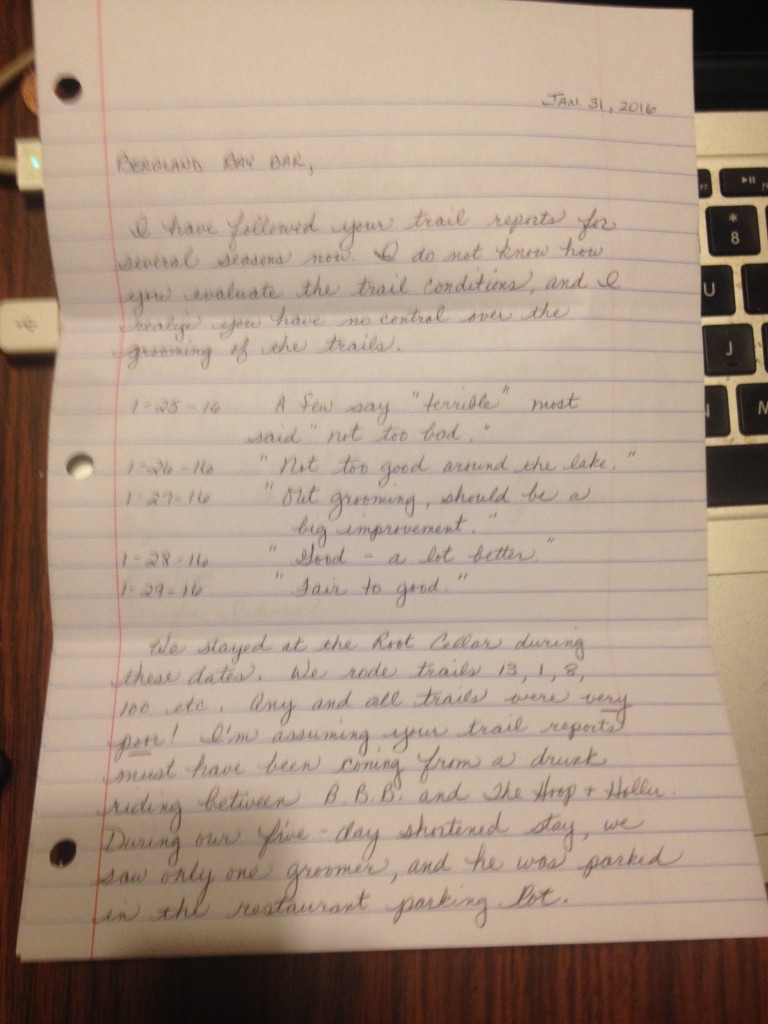 JAN 31, 2016
BERGLAND BAY BAR,
I have followed your trail reports for
several seasons now. I do not know how
you evaluate the trail conditions, and I
realize you have no control over the
grooming of the trails.
1-25-16 A few say "terrible" most
said "not too bad."
1-26-16 "Not too good around the lake."
1-27-16 "Out grooming, should be a
big improvement."
1-28-16 "Good - a lot better"
1-29-16 "Fair to good."
We stayed at the Root Cellar during
these dates. We rode trails 13, 1, 8,
100 etc. Any and all trails were very
poor! I'm assuming your trail reports
must have been coming from a drunk
riding between B.B.B. and The Hoop + Holler.
During our five-day shortened stay, we
saw only one groomer, and he was parked
in the restaurant parking lot.
U
J
N
M
*
8